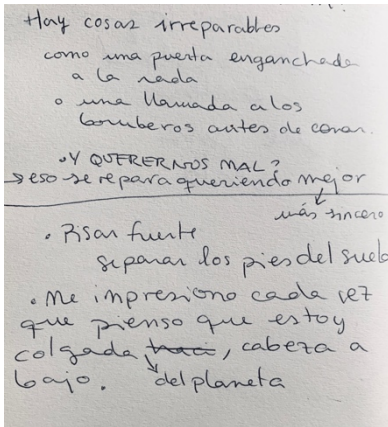 Hay cosas irreparables
como una puerta enganchada
a la nada
o una llamada a los
bomberos antes de cenar.
¿Y QUERERNOS MAL?
→ eso se repara queriendo mejor
más sincero
• Pisar fuerte
separar los pies del suelo
• Me impresiono cada vez
que pienso que estoy
colgada, cabeza a
bajo. del planeta